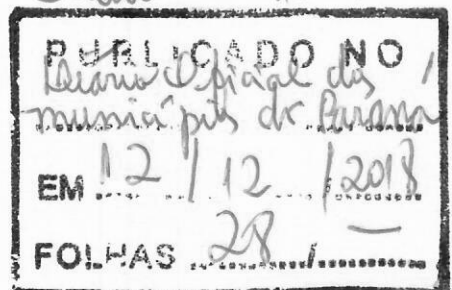 PUBLICADO NO
Diário Oficial dos
municípios do Paraná
EM 12 / 12 / 2018
FOLHAS 28 / —